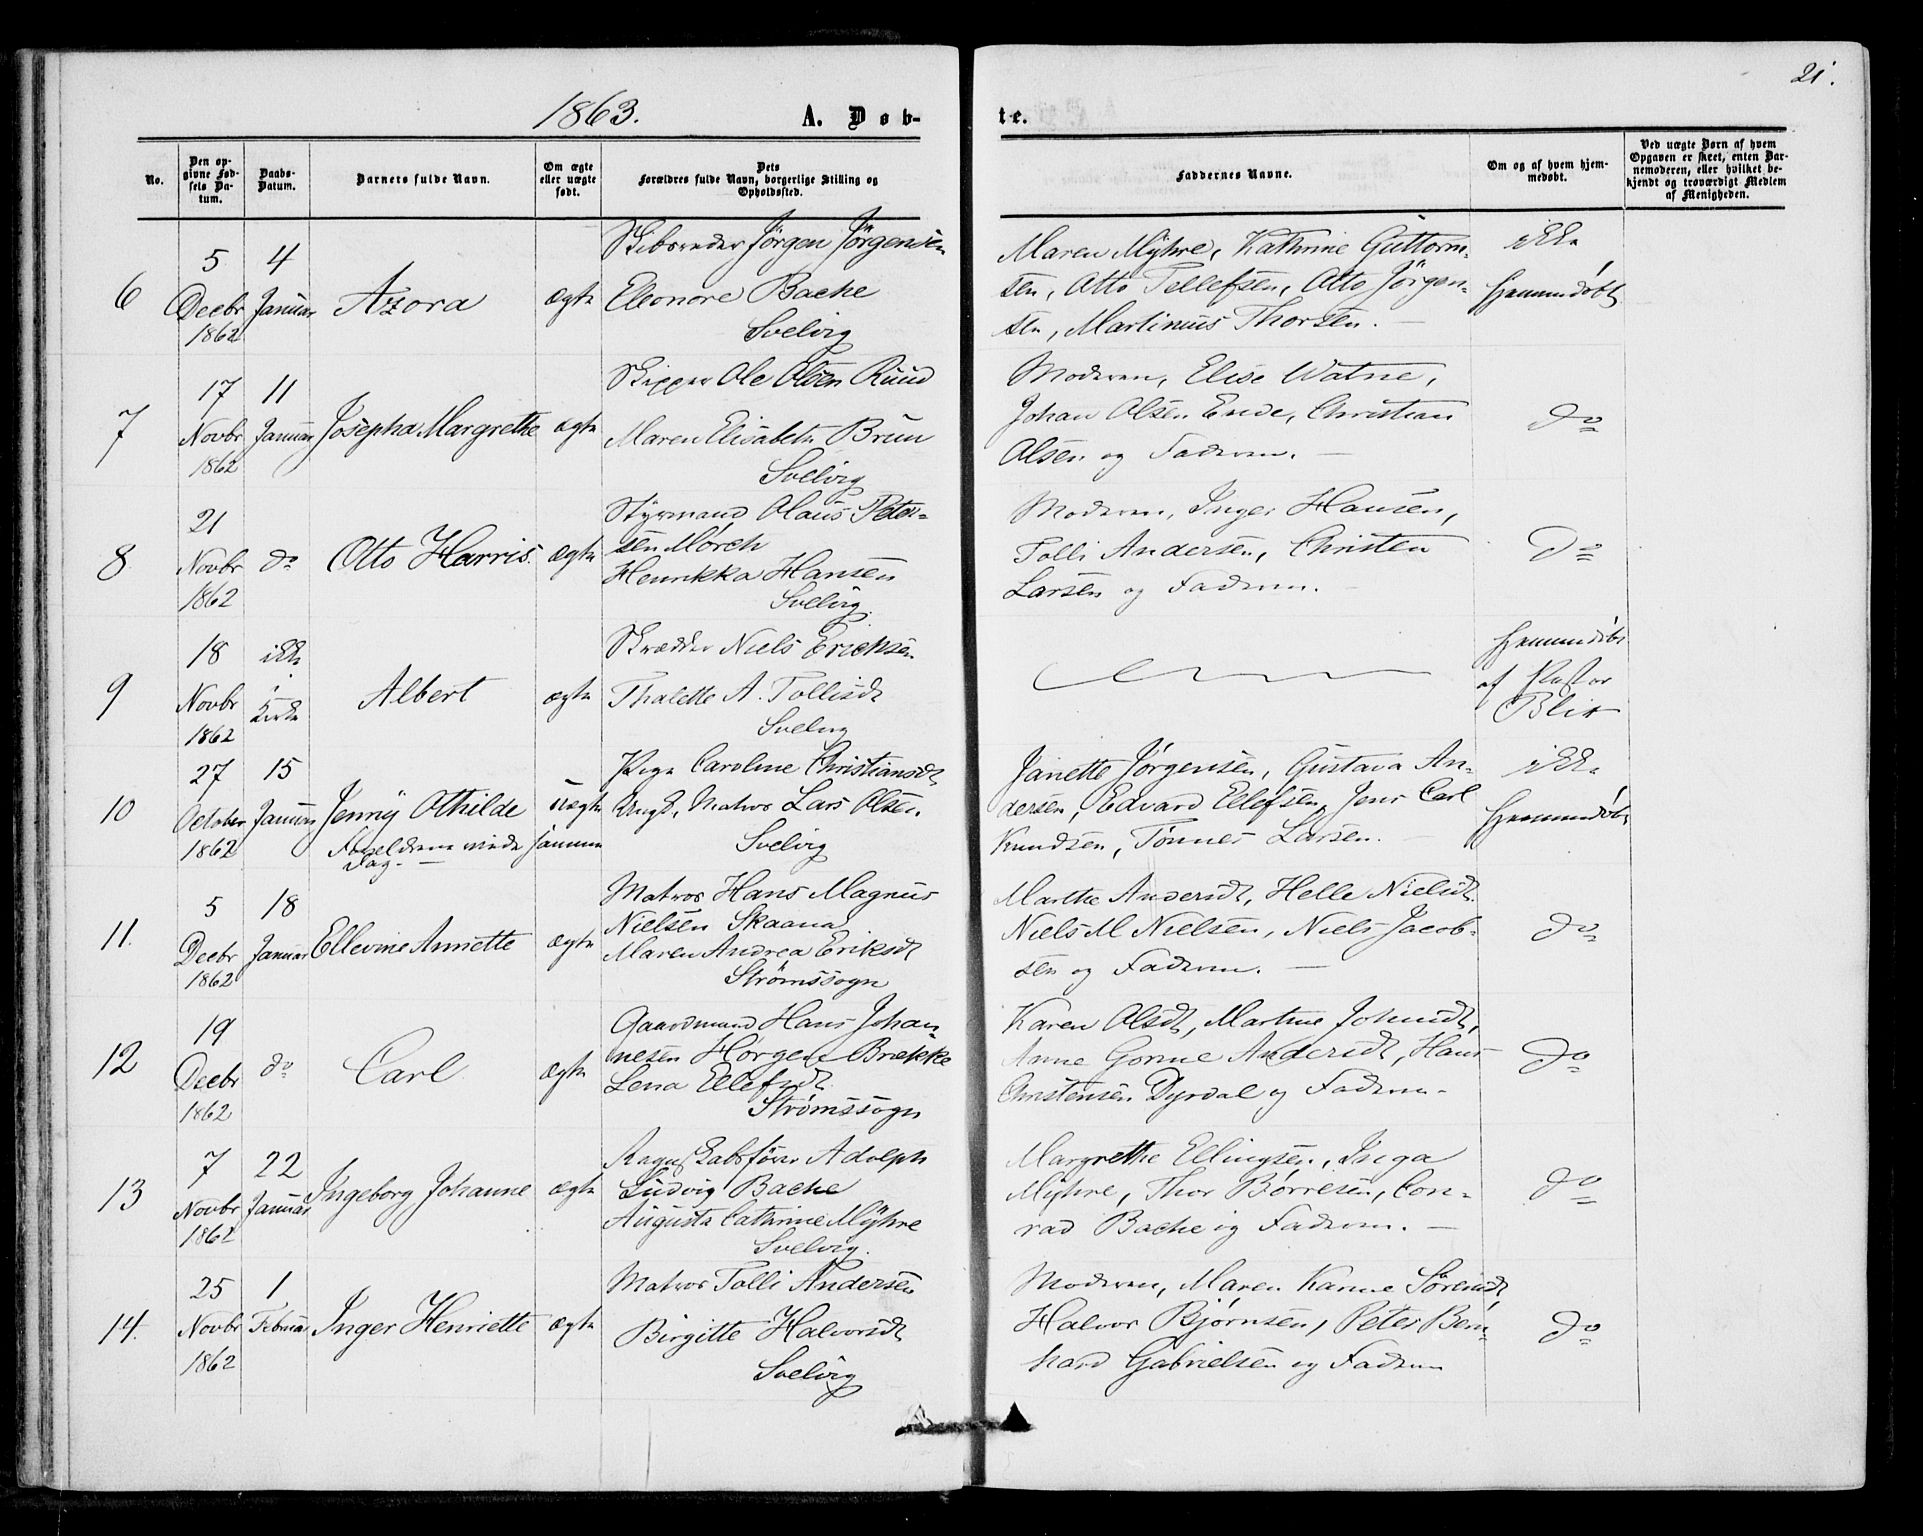 21.
1863.
A. Døb-
te.
No.
Den op-
givne Fød-
sels Da-
tum.
Daabs-
Datum.
Barnets fulde Navn.
Om ægte
eller uægte
født.
Dets
Forældres fulde Navn, borgerlige Stilling og
Opholdssted.
Faddernes Navne.
Om og af hvem hjem-
medøbt.
Ved uægte Børn af hvem
Opgaven er skeet, enten Bar-
nemoderen, eller hvilket be-
kjendt og troværdigt Medlem
af Menigheden.
6
5
Decbr
1862
4
Januar
Azora
ægte
Skibsreder Jörgen Jörgensen
Eleonore Bache
Svelvig
Maren Myhre, Kathrine Guttorm-
sen, Otto Tellefsen, Otto Jörgen-
sen, Martinus Thorsen. —
ikke
hjemmedøbt
7
17
Novbr
1862
11
Januar
Josepha Margrethe
ægte
Skipper Ole Olsen Ruud
Maren Elisabeth Brun
Svelvig
Moderen, Elise Watne,
Johan Olsen Ende, Christian
Olsen og Faderen. —
do
8
21
Novbr
1862
do
Otto Harris.
ægte
Styrmand Olaus Peter-
sen Mørch
Henrikka Hansen
Svelvig.
Moderen, Inger Hansen,
Tolli Andersen, Christen
Larsen og Faderen. —
do
9
18
Novbr
1862
ikke
i
Kirke
Albert
ægte
Skrædder Niels Ericksen
Thalette A. Tollisdt
Svelvig
hjemmedøbt
af Pastor
Blix
10
27
October
1862
15
Januar
Jenny Othilde
Forældrene viede samme
Dag. —
uægte
Pige Caroline Christiansdt
Ungk. Matros Lars Olsen.
Svelvig
Janette Jørgensen, Gustava An-
dersen, Edvard Ellefsen, Jens Carl
Knudsen, Tønnes Larsen. —
ikke
hjemmedøbt
11.
5
Decbr
1862
18
Januar
Ellevine Annette
ægte
Matros Hans Magnus
Nielsen Skaana
Maren Andrea Eriksdt
Strømssogn
Marthe Andersdt, Helle Nielsdt.
Niels M Nielsen, Niels Jacob-
sen og Faderen. —
do
12
19
Decbr
1862
do
Carl
ægte
Gaardmand Hans Johan-
nesen Hørgen Brække
Lena Ellefsdt.
Strømssogn
Karen Olsdt, Martine Johnsdt,
Anne Gorine Andersdt, Hans
Christensen Dyrdal og Faderen.
do
13
7
Novbr
1862
22
Januar
Ingeborg Johanne
ægte
Regnskabsfører Adolph
Ludvig Bache
Augusta Cathrine Myhre
Svelvig.
Margrethe Ellingsen, Inga
Myhre, Thor Børresen, Con-
rad Bache og Faderen. —
do
14.
25
Novbr
1862
1
Februar
Inger Henriette
ægte
Matros Tolli Andersen
Birgitte Halvorsdt
Svelvig
Moderen, Maren Karine Sørensdt,
Halvor Bjørnsen, Peter Bern-
hard Gabrielsen og Faderen
do